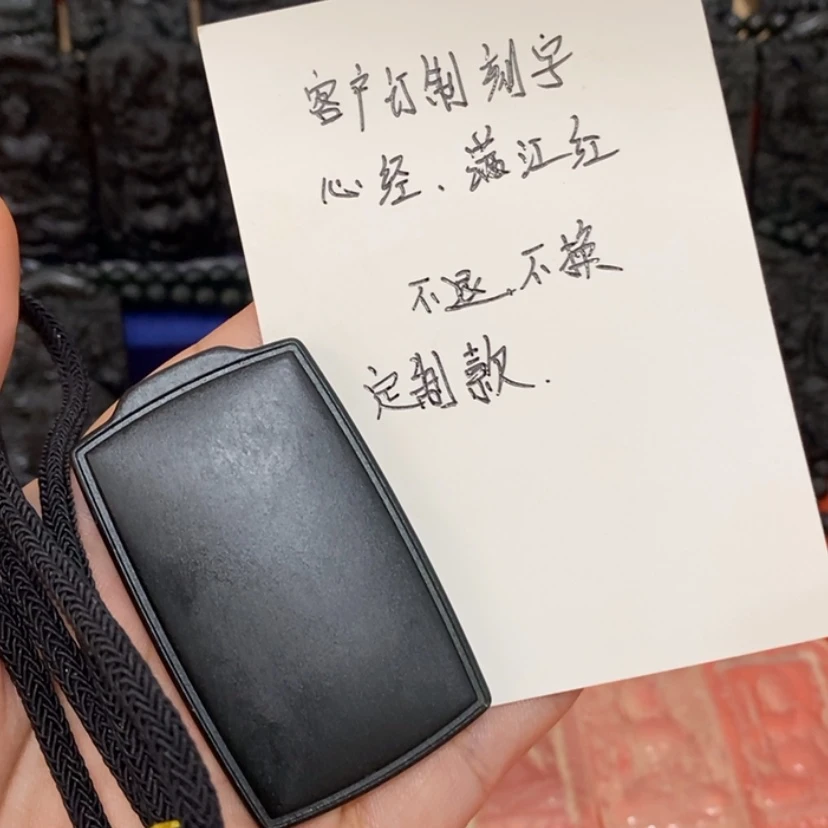 客户订制刻字
心经、满江红
不退.不换
定制款.